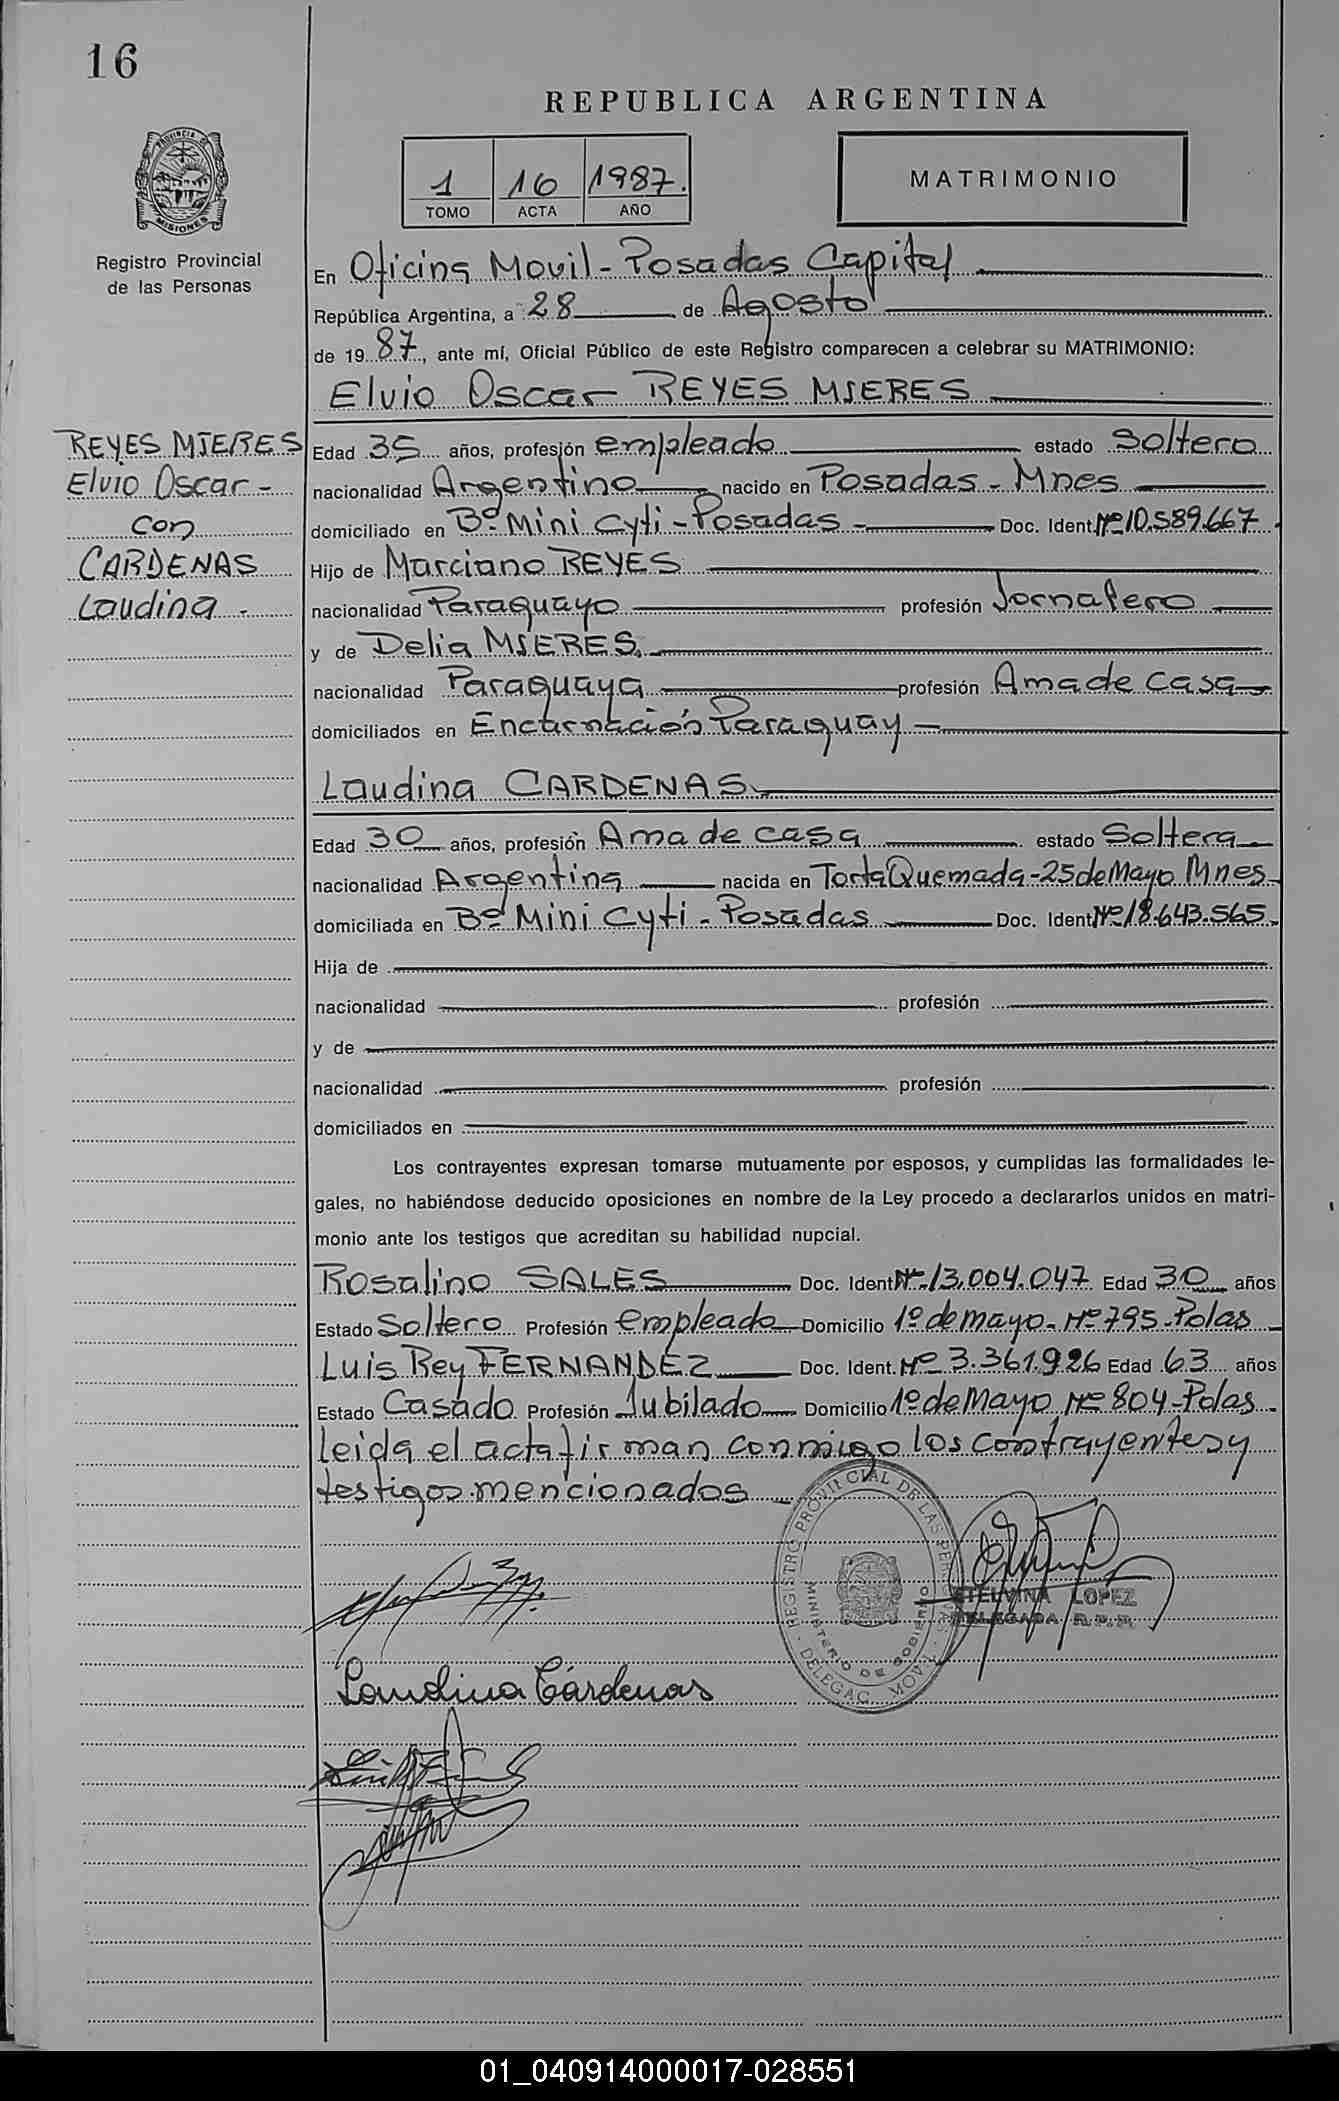 16
REPUBLICA ARGENTINA
1 16 1987.
TOMO ACTA AÑO
MATRIMONIO
PROVINCIA D
MISIONES
Registro Provincial
de las Personas
En Oficina Movil - Posadas Capital
República Argentina, a 28 de Agosto
de 19 87, ante mí, Oficial Público de este Registro comparecen a celebrar su MATRIMONIO:
Elvio Oscar REYES MIERES
REYES MIERES
Elvio Oscar -
con
CARDENAS
Laudina -
Edad 35 años, profesión empleado estado Soltero
nacionalidad Argentino nacido en Posadas - Mnes
domiciliado en Bº Mini Cyti - Posadas - Doc. Ident. Nº 10.589.667
Hijo de Marciano REYES
nacionalidad Paraguayo profesión Jornalero
y de Delia MIERES.
nacionalidad Paraguaya profesión Ama de casa
domiciliados en Encarnación Paraguay -
Laudina CARDENAS
Edad 30 años, profesión Ama de casa estado Soltera
nacionalidad Argentina nacida en Torta Quemada - 25 de Mayo Mnes
domiciliada en Bº Mini Cyti - Posadas Doc. Ident. Nº 18.643.565-
Hija de
nacionalidad profesión
y de
nacionalidad profesión
domiciliados en
Los contrayentes expresan tomarse mutuamente por esposos, y cumplidas las formalidades le-
gales, no habiéndose deducido oposiciones en nombre de la Ley procedo a declararlos unidos en matri-
monio ante los testigos que acreditan su habilidad nupcial.
Rosalino SALES Doc. Ident. Nº 13.004.047 Edad 30 años
Estado Soltero Profesión empleado Domicilio 1º de mayo - Nº 795 - Pdas
Luis Rey FERNANDEZ Doc. Ident. Nº 3.361.926 Edad 63 años
Estado Casado Profesión Jubilado Domicilio 1º de Mayo Nº 804 - Pdas -
leida el acta firman conmigo los contrayentes y
testigos mencionados
REGISTRO PROVINCIAL DE LAS PER
MINISTERIO DE GOBIERNO
DELEGAC. MOVIL
ETELVINA LOPEZ
DELEGADA R.P.P.
Laudina Cárdenas
01_040914000017-028551